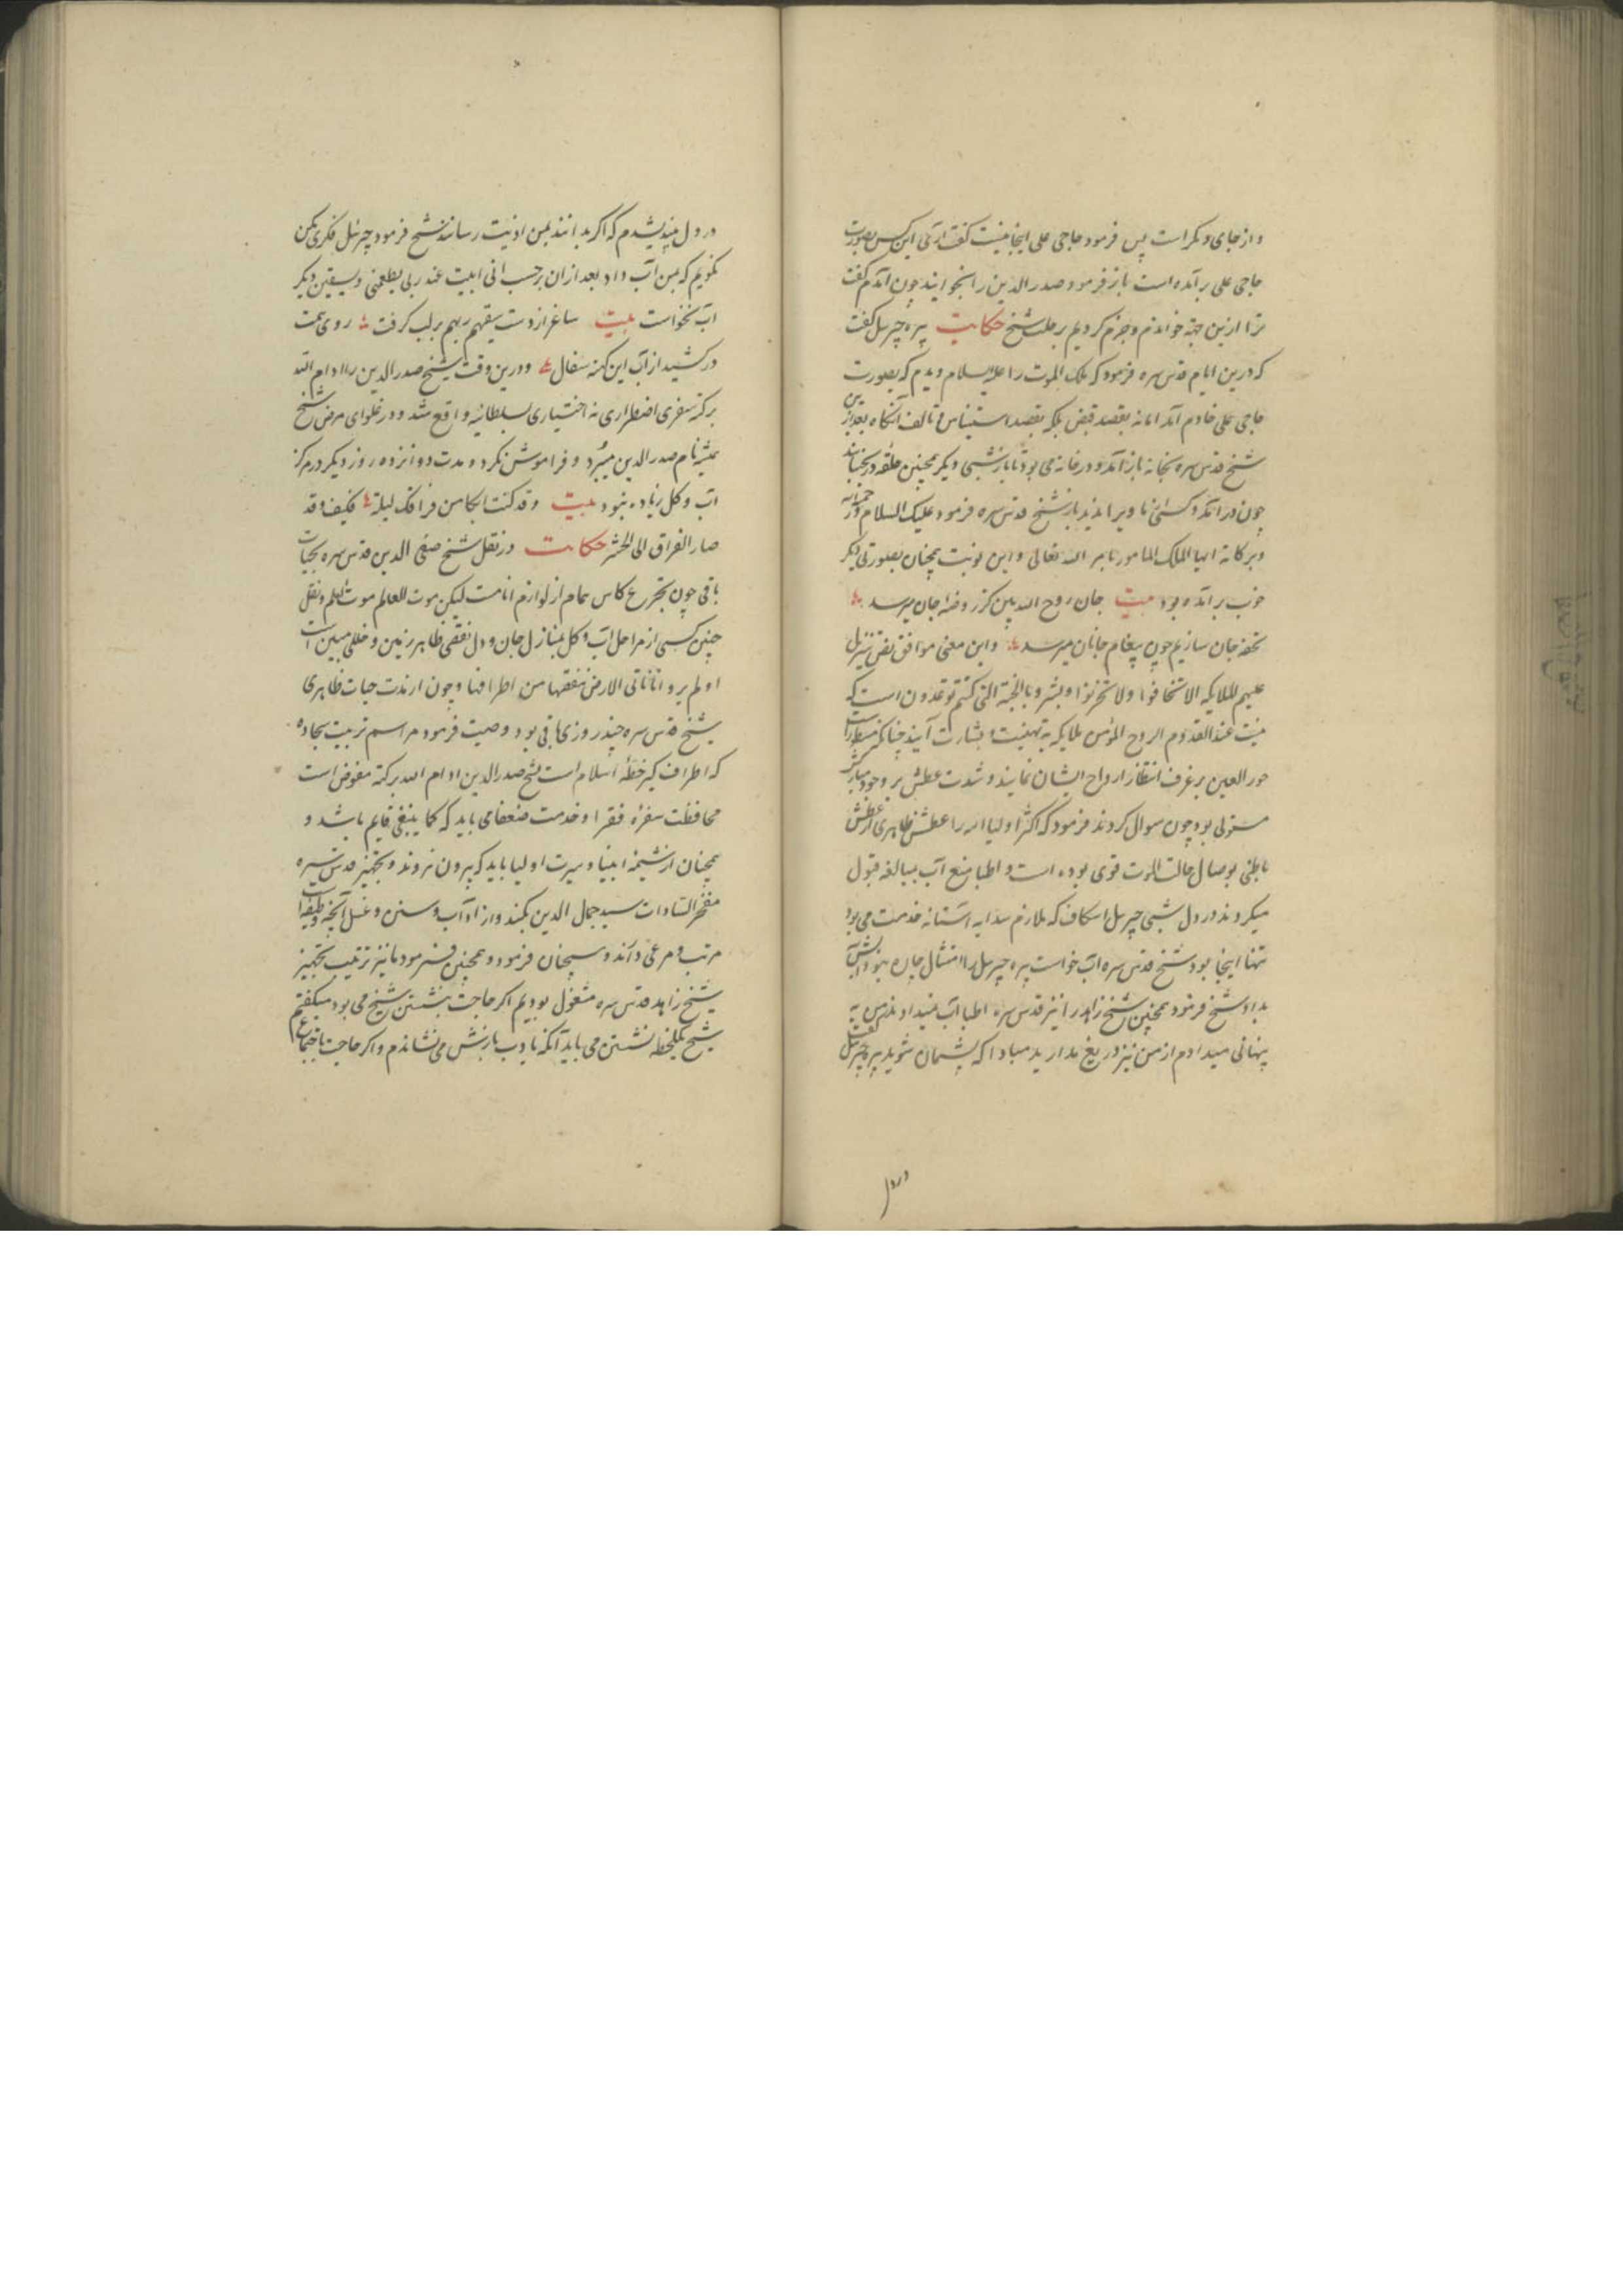 و از جای دیگر است پس فرمود حاجی علی اینجا نیست گفت آری این کس بصورت
حاجی علی بر آمده است باز فرمود صدر الدین را بخوانید چون آمدم گفت
ترا ازین جهة خواندم و جزم کردیم بر حلت شیخ حکایت پیره جبرئیل گفت
که درین ایام قدس سره فرمود که ملک الموت را علیه السلام دیدم که بصورت
حاجی علی خادم آمد اما نه بقصد قبض بلکه بقصد استیناس و تالف آنگاه بعد از
شیخ قدس سره بخانه باز آمد و در خانه می بود تا باز شبی دیگر همچنین حلقه در بجنبانید
چون در آمد و کسی نا ویرا ندید باز شیخ قدس سره فرمود علیک السلام و رحمة الله
و برکاته ایها الملک المامور بامر الله تعالی و این نوبت همچنان بصورتی دیگر
خوب بر آمده بود بیت جان روح الله بین کز روضهٔ جان میرسد
تحفه جان سازیم چون پیغام جانان میرسد و این معنی موافق نص تتنزل
علیهم الملایکه الا تخافوا ولا تحزنوا و ابشروا بالجنة التی کنتم توعدون است که
عند القدوم الروح المؤمن ملایکه به تهنیت و بشارت آیند چنانکه منتظرات
حور العین بر غرف انتظار ارواح ایشان نمایند و شدت عطش بر وجود مبارکش
مستولی بود چون سوال کردند فرمود که اکثر اولیا الله را عطش ظاهری از عطش
باطنی بوصال حالت الموت قوی بوده است و اطبا منع آب بمبالغه قبول
میکردند در دل شبی جبرئیل اسکاف که ملازم سدایه آستانه خدمت می بود
تنها اینجا بود شیخ قدس سره آب خواست پیره جبرئیل را امتثال چاره نبود آبش
بداد شیخ فرمود همچنین شیخ زاهد را نیز قدس سره اطبا آب نمیدادند من به
پنهانی میدادم از من نیز دریغ مدارید مبادا که پشیمان شوید پیره جبرئیل گفت
در دل
در دل اندیشیدم که اگر بدانند بمن اذیت رسانند شیخ فرمود جبرئیل فکری مکن
نگویم که بمن آب داد بعد از ان بر حسب انی ابیت عند ربی یطعمنی و یسقین دیگر
آب نخواست بیت ساغر از دست سقیهم ربهم بر لب گرفت روی همت
در کشید از آب این کهنه سفال و درین وقت شیخ صدر الدین را ادام الله
برکته سفری اضطراری نه اختیاری بسلطانیه واقع شد و در غلوای مرض شیخ
همیشه نام صدر الدین میبرد و فراموش نکرد و مدت دوانزده روز دیگر در مرکز
آب و گل زیاده نبود بیت و قد کنت ابکی من فراقک لیلة فکیف و قد
صار الفراق الی الحشر حکایت در نقل شیخ صفی الدین قدس سره بحیات
باقی چون تجرع کاس حمام از لوازم انامست لیکن موت العالم موت العالم و نقل
چنین کسی از مراحل آب و گل بمنازل جان و دل نقصی ظاهر زمین و خللی مبین است
اولم یروا انا ناتی الارض ننقصها من اطرافها و چون از مدت حیات ظاهری
شیخ قدس سره چند روزی باقی بود وصیت فرمود مراسم تربیت سجاده
که اطراف گیر خطهٔ اسلام است بشیخ صدر الدین ادام الله برکته مفوض است
محافظت سفرهٔ فقرا و خدمت ضعفا می باید که کما ینبغی قایم باشد و
همچنان از شیمهٔ انبیا و سیرت اولیا باید که بیرون نروند و تجهیز قدس سره
مفخر السادات سید جمال الدین بکند و از آداب و سنن و غسل آنچه وظیفه است
مرتب و مرعی دارد و سبحان فرمود و همچنین فرمود ما نیز ترتیب تجهیز
شیخ زاهد قدس سره مشغول بودیم اگر حاجت بنشستن شیخ می بود میگفتم
شیخ یکلحظه نشستن می باید آنگه با ادب بازنش می نشاندم و اگر حاجت باضجاع